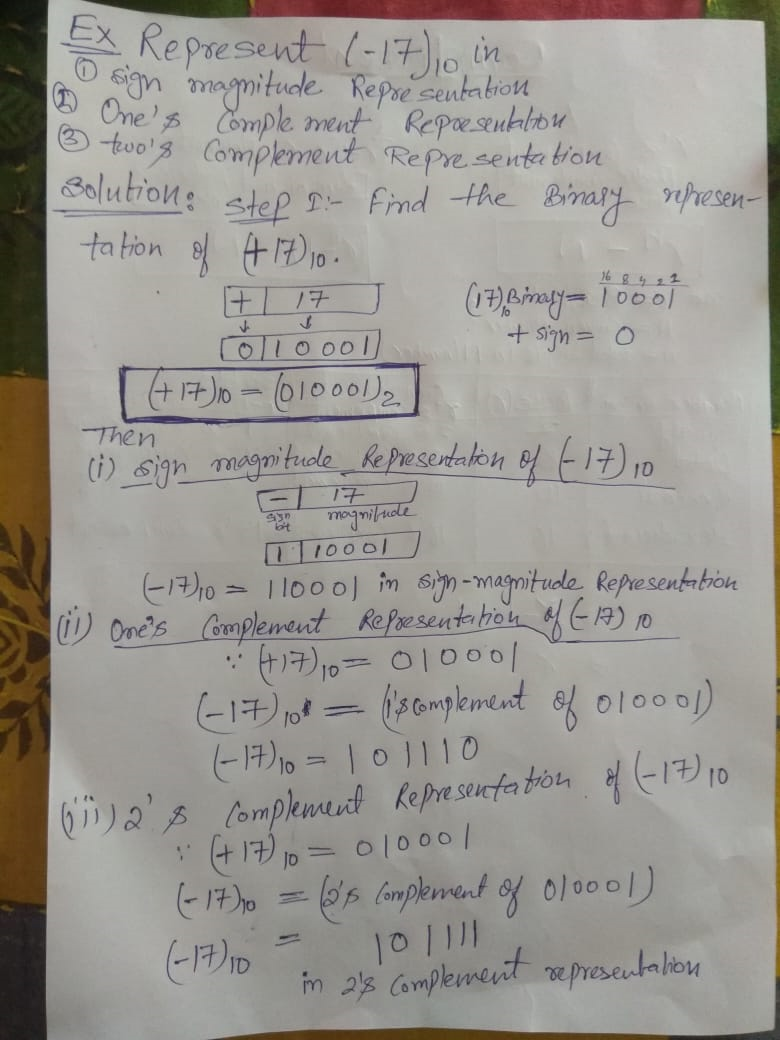 Ex Represent (-17)10 in
① sign magnitude Representation
② One's Complement Representation
③ two's Complement Representation
Solution: Step I:- Find the Binary represen-
tation of (+17)10.
+ 17
0 10001
16 8 4 2 1
(17)10 Binary = 10001
+ sign = 0
(+17)10 = (010001)2
Then
(i) Sign magnitude Representation of (-17)10
- 17
sign bit magnitude
1 10001
(-17)10 = 110001 in sign-magnitude Representation
(ii) One's Complement Representation of (-17)10
∵ (+17)10 = 010001
(-17)10 = (1's complement of 010001)
(-17)10 = 101110
(iii) 2's Complement Representation of (-17)10
∵ (+17)10 = 010001
(-17)10 = (2's Complement of 010001)
(-17)10 = 101111
in 2's Complement representation